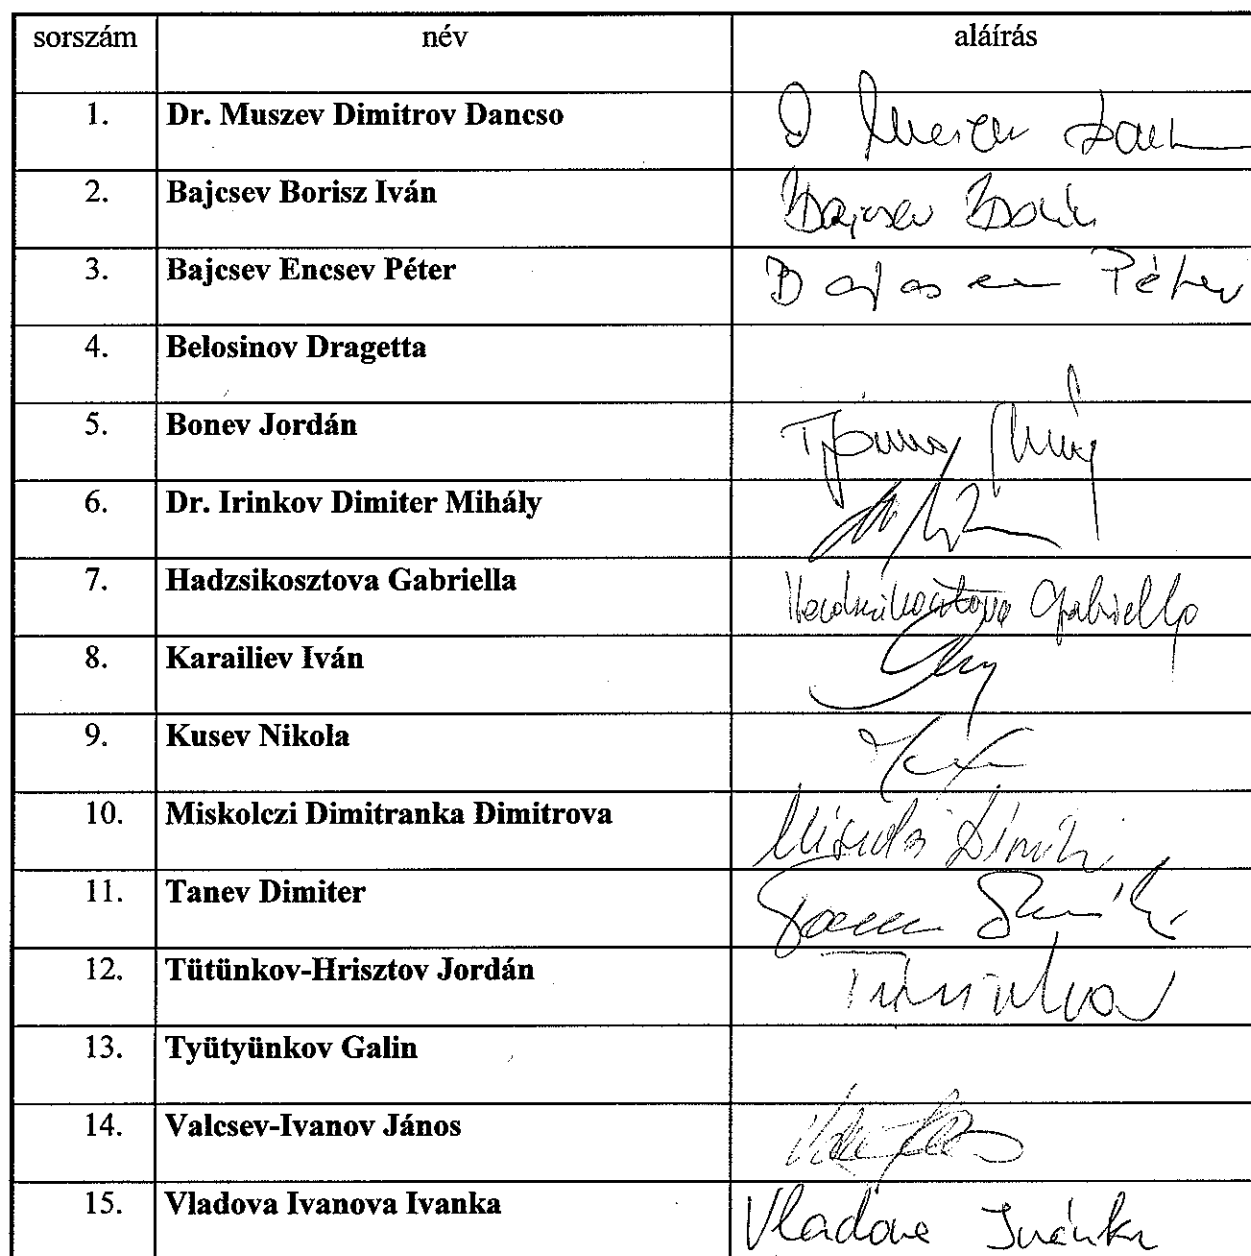 sorszám név aláírás
1. Dr. Muszev Dimitrov Dancso
2. Bajcsev Borisz Iván Bajcsev
3. Bajcsev Encsev Péter Péter
4. Belosinov Dragetta
5. Bonev Jordán
6. Dr. Irinkov Dimiter Mihály
7. Hadzsikosztova Gabriella Hadzsikosztova Gabriella
8. Karailiev Iván
9. Kusev Nikola
10. Miskolczi Dimitranka Dimitrova
11. Tanev Dimiter
12. Tütünkov-Hrisztov Jordán
13. Tyütyünkov Galin
14. Valcsev-Ivanov János
15. Vladova Ivanova Ivanka Vladova Ivánka